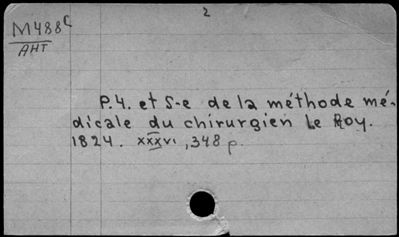 M488c
AHT
2
P.4. et S-e de la méthode mé-
dicale du chirurgien Le Roy.
1824. xxxvi, 348 p.